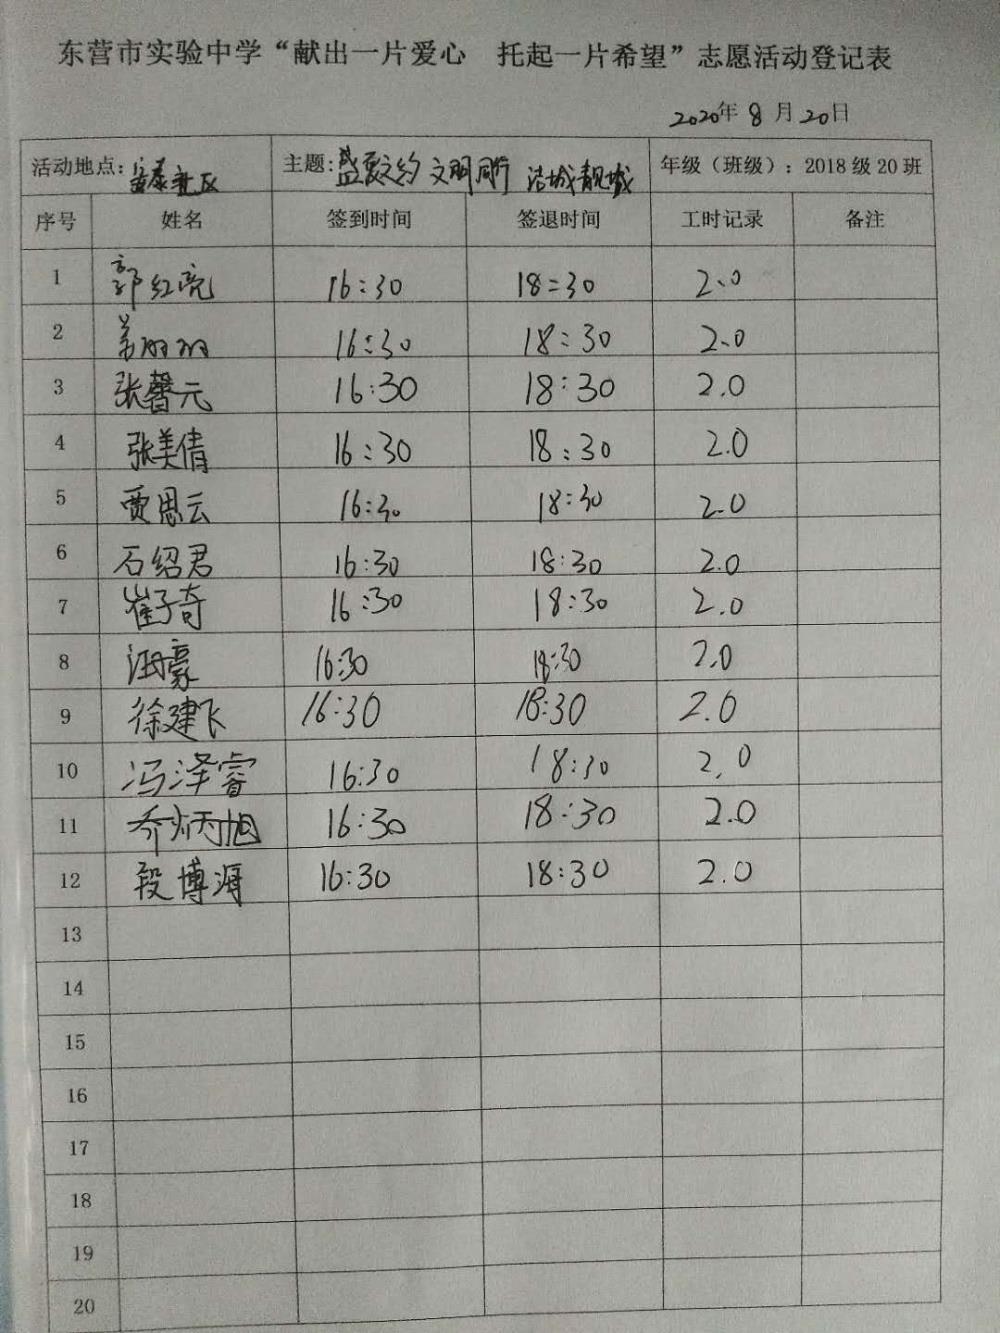 东营市实验中学“献出一片爱心 托起一片希望”志愿活动登记表
2020年 8 月 20日
活动地点: 安泰社区 主题: 盛夏之约 文明同行 洁城靓城 年级（班级）: 2018 级 20 班
序号 姓名 签到时间 签退时间 工时记录 备注
1 郭红亮 16:30 18:30 2.0
2 丽丽 16:30 18:30 2.0
3 张馨元 16:30 18:30 2.0
4 张美倩 16:30 18:30 2.0
5 贾思云 16:30 18:30 2.0
6 石绍君 16:30 18:30 2.0
7 崔子奇 16:30 18:30 2.0
8 豪 16:30 18:30 2.0
9 徐建飞 16:30 18:30 2.0
10 冯泽睿 16:30 18:30 2.0
11 乔炳旭 16:30 18:30 2.0
12 段博海 16:30 18:30 2.0
13
14
15
16
17
18
19
20